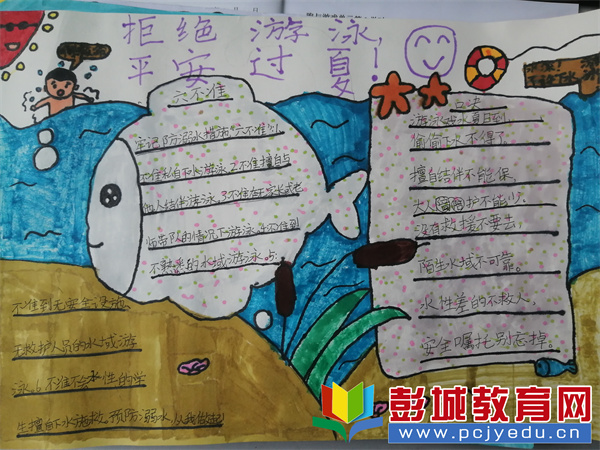 拒绝 游泳，
平安 过 夏！
六不准
牢记防溺水措施"六不准"：1.
不准私自下水游泳。2.不准擅自与
他人结伴游泳。3.不准在无家长或老
师带队的情况下游泳。4.不准到
不熟悉的水域游泳。5.
不准到无安全设施
无救护人员的水域游
泳。6.不准不会水性的学
生擅自下水施救。预防溺水，从我做起
口诀
游泳戏水夏日到，
偷偷下水不得了。
擅自结伴不能保，
大人陪同护不能少。
没有救援不要去，
陌生水域不可靠。
水性差的不救人，
安全嘱托别忘掉。
彭城教育网
www.pcjyedu.cn